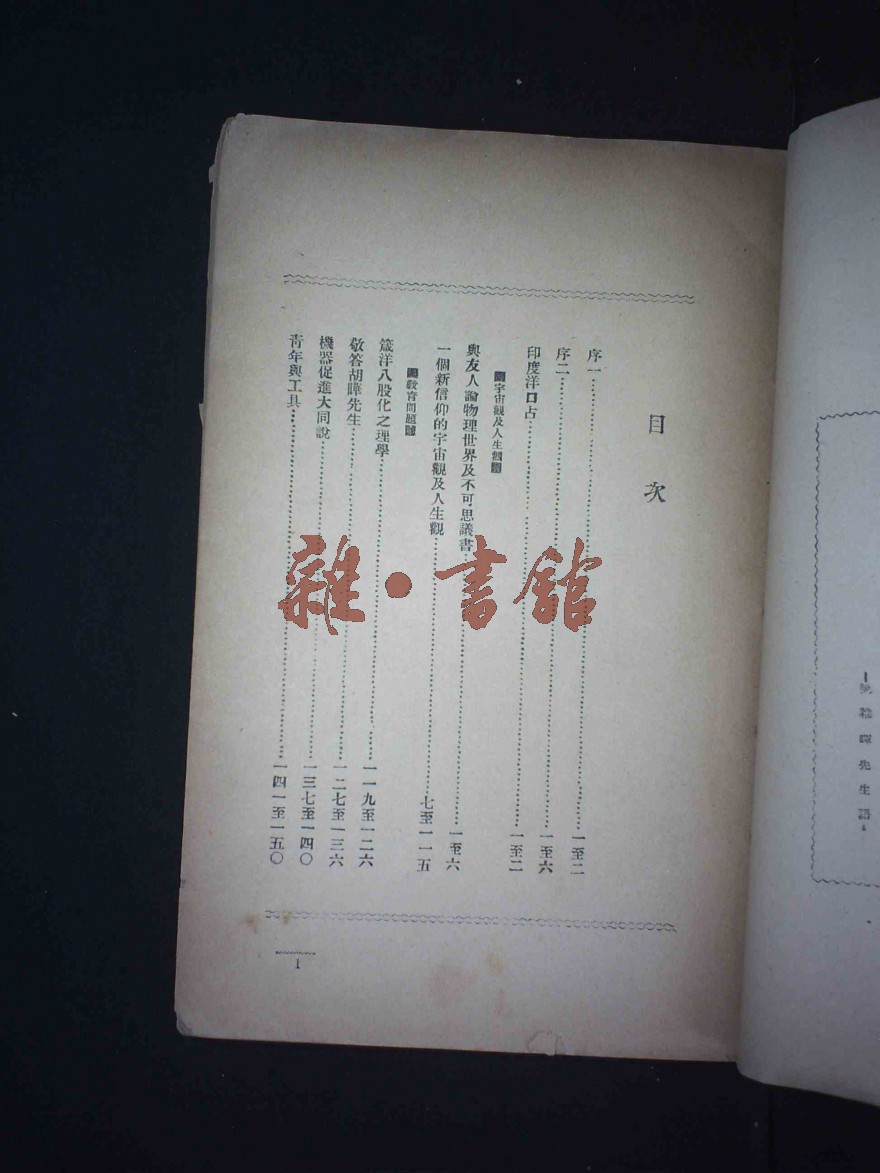 目次
序一……一至二
序二……一至六
印度洋口占……一至二
宇宙觀及人生觀
與友人論物理世界及不可思議書……一至六
一個新信仰的宇宙觀及人生觀……七至一一五
教育問題
箴洋八股化之理學……一一九至一二六
敬答胡曄先生……一二七至一三六
機器促進大同說……一三七至一四〇
靑年與工具……一四一至一五〇
1
雜·書館
先生語